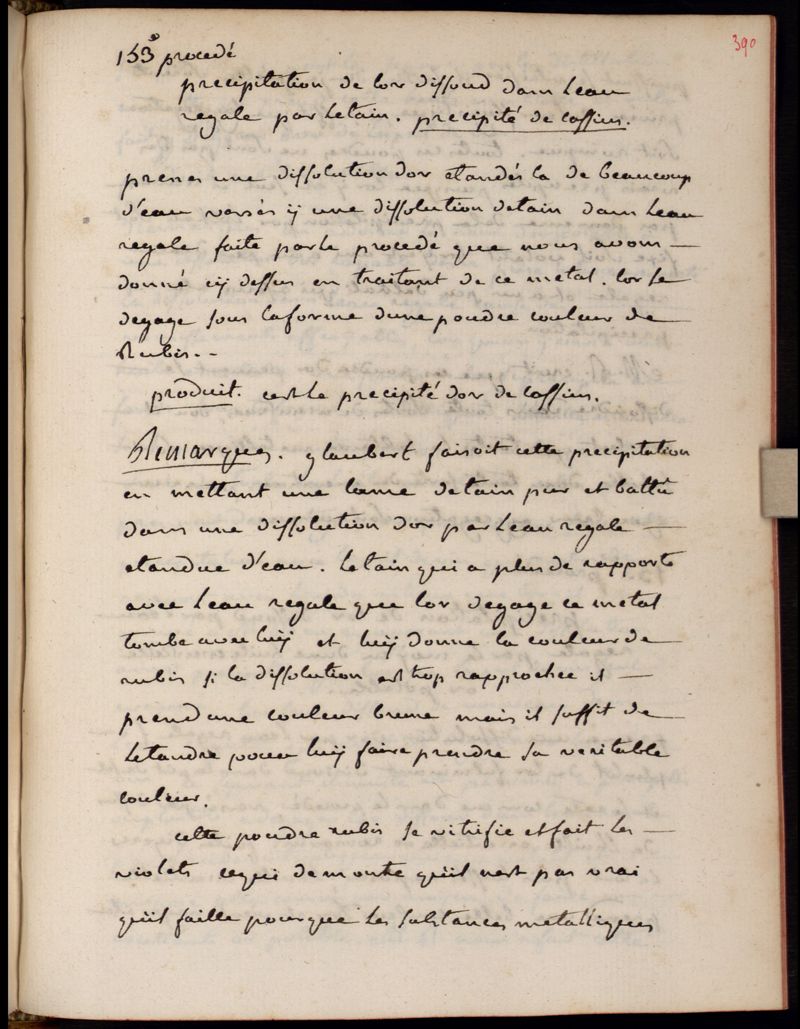 390
153e procedé
precipitation de lor dissoud dans leau
regale par letain. precipité de cassius.
prenes une dissolution dor etandés la de beaucoup
d'eau versés ÿ une dissolution detain dans leau
regale faite parle procedé que nous avons
donné cÿ dessus en traitant de ce metal. lor se
degage sous laforme dune poudre couleur de
Rubis. -
produit. cest le precipité dor de cassius.
Remarques. glaubert faisoit cette precipitation
en mettant une lame detain pur et battu
dans une dissolution dor par leau regale
etandue d'eau. letain qui a plus de rapports
avec leau regale que lor degage ce metal
tombe avec luÿ et luÿ donne la couleur de
rubis si la dissolution est trop rapprochée il
prend une couleur brune mais il suffit de
letandre pour luÿ faire prendre sa veritable
couleur.
cette poudre rubis se vitrifie et fait les
violets cequi demontre quil nest pas vrai
quil faille pourque les substances metalliques